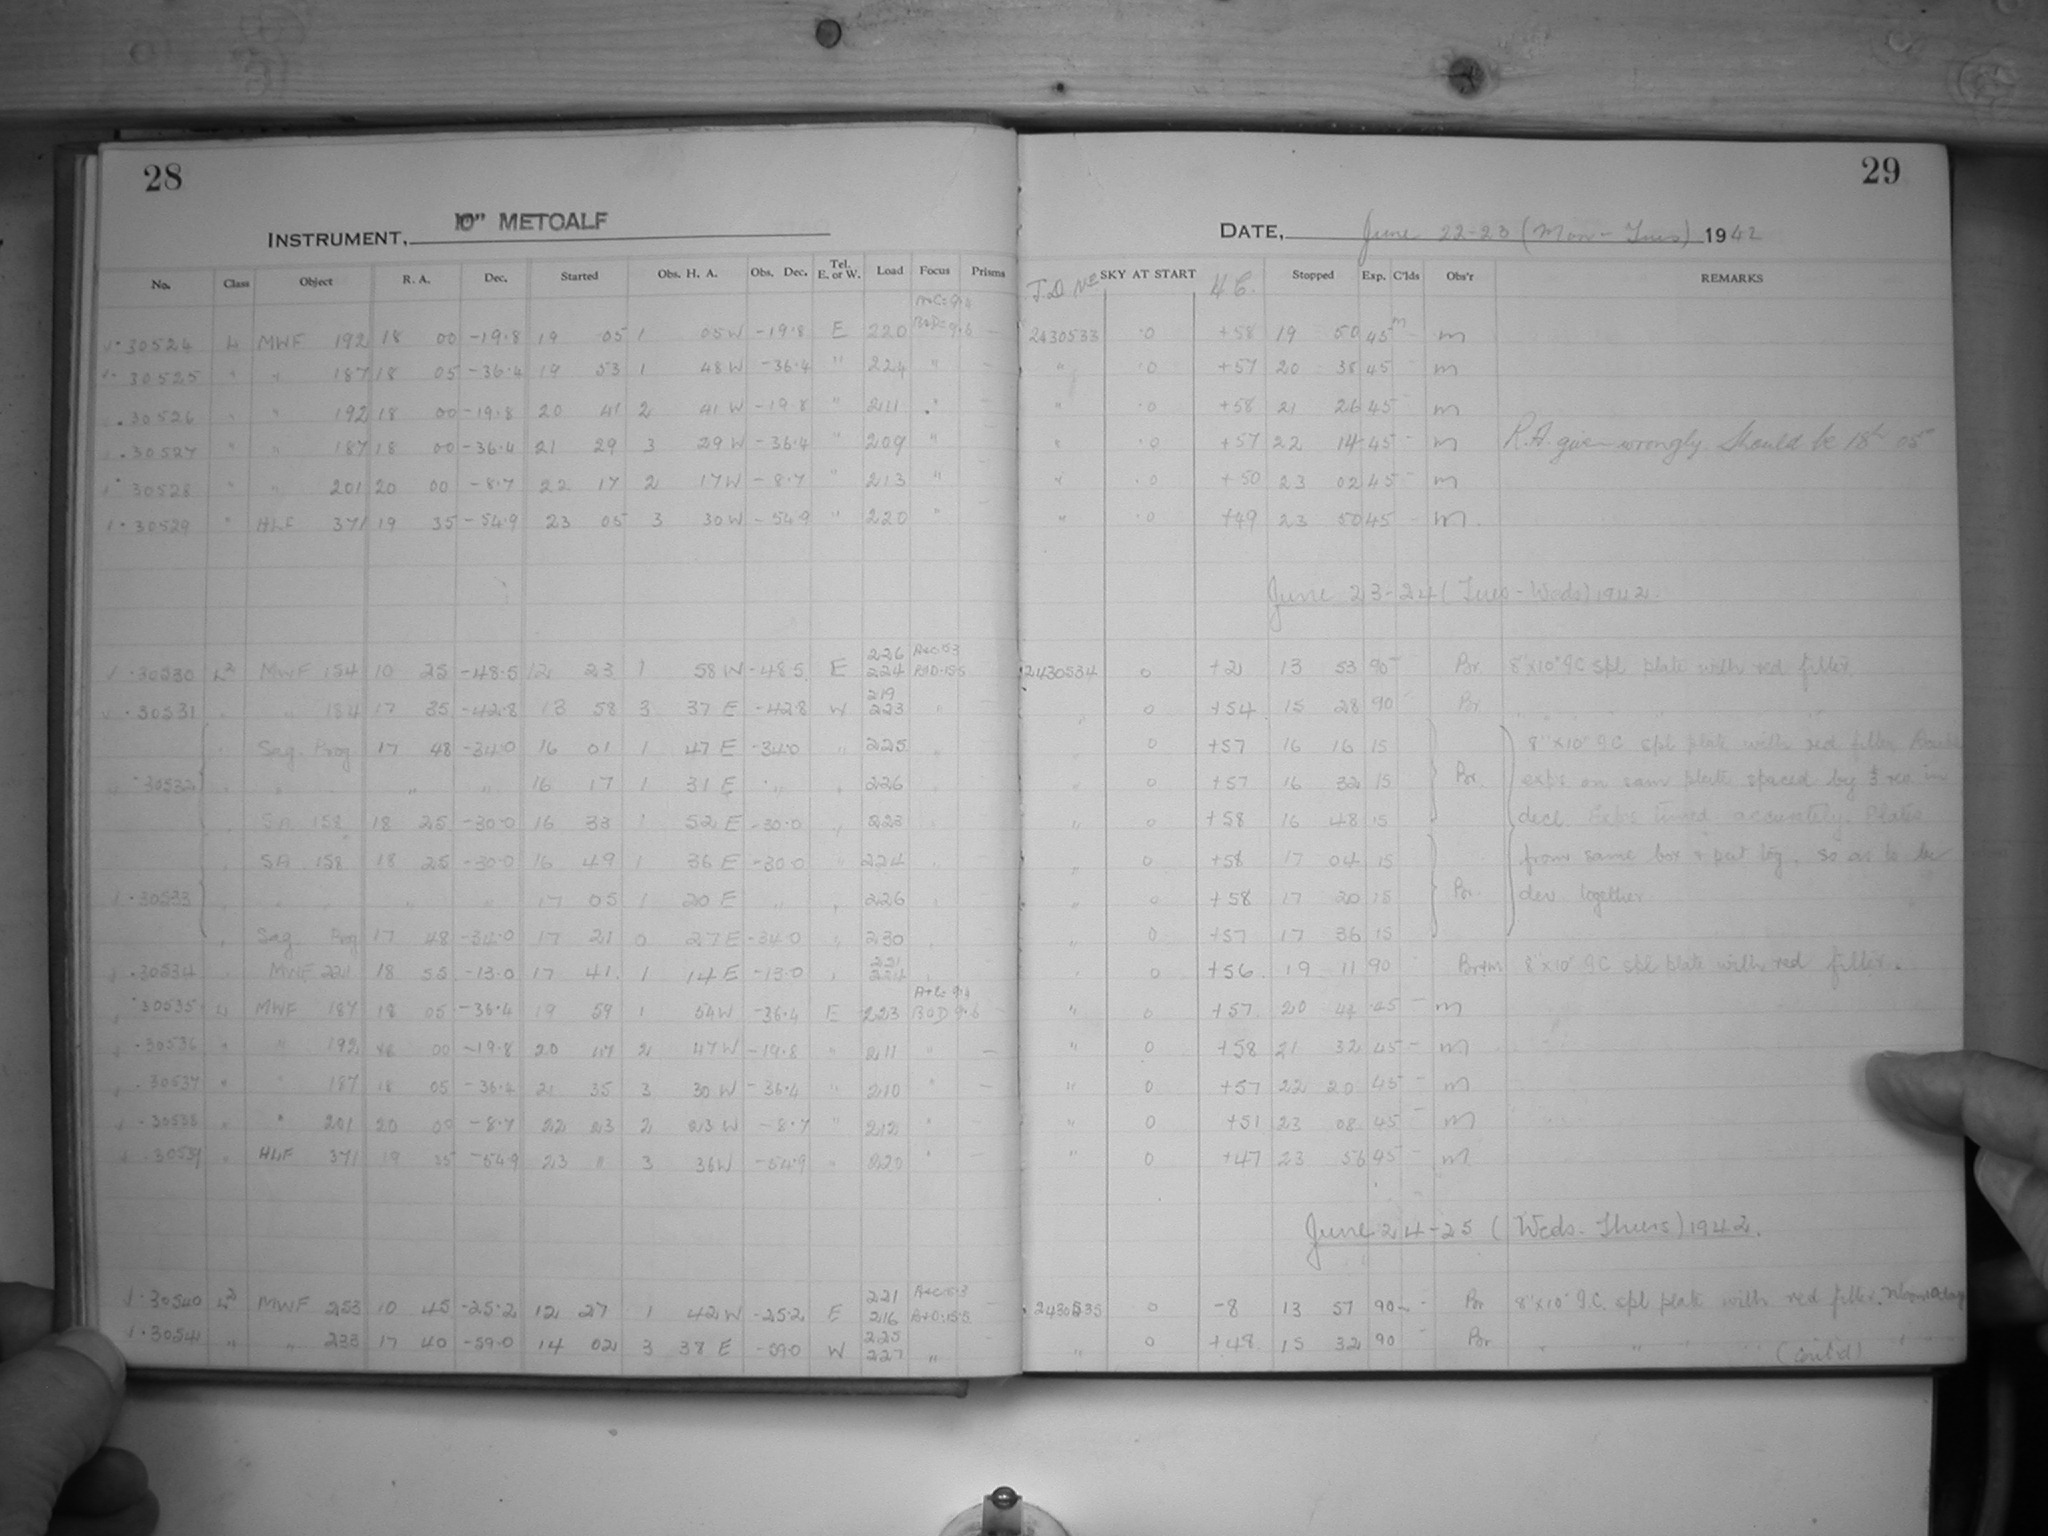 28
29
INSTRUMENT, 10" METCALF
DATE, June 22-23 (Mon - Tues) 1942
No. Class Object R. A. Dec. Started Obs. H. A. Obs. Dec. Tel. E. or W. Load Focus Prisms J.D. SKY AT START H.C. Stopped Exp. C'lds Obs'r REMARKS
30524 L MWF 192 18 00 -19.8 19 05 1 05W -19.8 E 220 2430533 0 +58 19 50 45m m
30525 " " 187 18 05 -36.4 19 53 1 48W -36.4 " 224 " " 0 +57 20 38 45 m
30526 " " 192 18 00 -19.8 20 41 2 41W -19.8 " 211 " " 0 +58 21 26 45 m
30527 " " 187 18 00 -36.4 21 29 3 29W -36.4 " 209 " " 0 +57 22 14 45 m R.A. given wrongly Should be 18h 05m
30528 " " 201 20 00 -8.7 22 17 2 17W -8.7 " 213 " " 0 +50 23 02 45 m
30529 " HLF 371 19 35 -54.9 23 05 3 30W -54.9 " 220 " " 0 +49 23 50 45 m
June 23-24 (Tues - Weds) 1942.
30530 L2 MWF 154 10 25 -48.5 12 23 1 58W -48.5 E 226 224 2430534 0 +21 13 53 90 Br. 8"x10" 9C spl plate with red filter
30531 " " 184 17 35 -42.8 13 58 3 37E -42.8 W 219 223 " " 0 +54 15 28 90 Br " " " " "
" Sag. Prog 17 48 -34.0 16 01 1 47E -34.0 " 225 " " 0 +57 16 16 15 8"x10" 9C spl plate with red filter Double
30532 " " " " 16 17 1 31E " " 226 " " 0 +57 16 32 15 Br. exps on sam plate spaced by in
" SA 158 18 25 -30.0 16 33 1 52E -30.0 " 223 " " 0 +58 16 48 15 decl. Exps timed accurately. Plates
" SA 158 18 25 -30.0 16 49 1 36E -30.0 " 224 " " 0 +58 17 04 15 from same box + put tog. so as to be
30533 " " " " 17 05 1 20E " " 226 " " 0 +58 17 20 15 Br. dev. together
" Sag. Prog 17 48 -34.0 17 21 0 27E -34.0 " 230 " " 0 +57 17 36 15
30534 " MWF 221 18 55 -13.0 17 41 1 14E -13.0 " " " 0 +56 19 11 90 Br+m 8"x10" 9C spl plate with red filter.
30535 L MWF 187 18 05 -36.4 19 59 1 54W -36.4 E 223 " 0 +57 20 44 45 m
30536 " " 192 18 00 -19.8 20 47 2 47W -19.8 " 211 " " 0 +58 21 32 45 m
30537 " " 187 18 05 -36.4 21 35 3 30W -36.4 " 210 " " 0 +57 22 20 45 m
30538 " " 201 20 00 -8.7 22 23 2 23W -8.7 " 212 " " 0 +51 23 08 45 m
30539 " HLF 371 19 35 -54.9 23 11 3 36W -54.9 " 220 " " 0 +47 23 56 45 m
June 24-25 (Weds - Thurs) 1942.
30540 L2 MWF 253 10 45 -25.2 12 27 1 42W -25.2 E 221 216 2430535 0 -8 13 57 90 Br 8"x10" 9.C. spl plate with red filter.
30541 " " 233 17 40 -59.0 14 02 3 38E -59.0 W 225 227 " " 0 +48 15 32 90 Br " " "
(Contd)